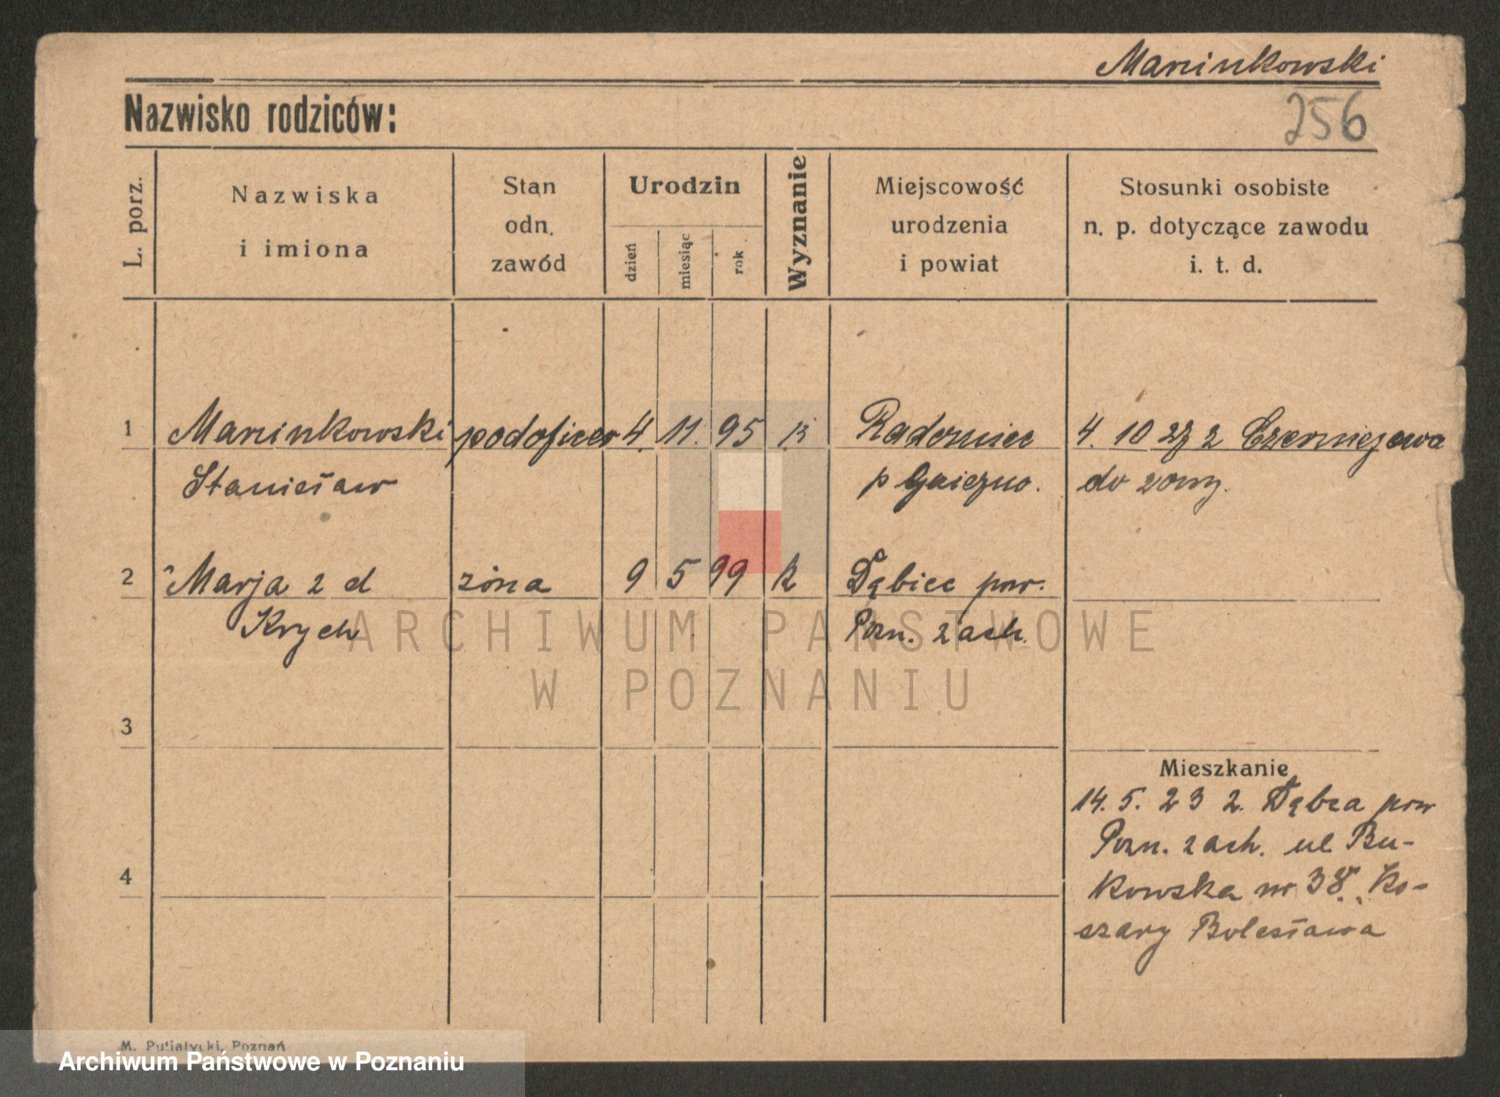 Marcinkowski
Nazwisko rodziców:
256
L. porz.
Nazwiska
i imiona
Stan
odn.
zawód
Urodzin
dzień
miesiąc
rok
Wyznanie
Miejscowość
urodzenia
i powiat
Stosunki osobiste
n. p. dotyczące zawodu
i. t. d.
1 Marcinkowski podoficer 4. 11. 95 k Radomice 4. 10 z Czerniejewa
Stanisław p Gniezno. do żony.
2 Marja z d żona 9 5 99 k Dębiec pow.
Krych Pozn. zach.
ARCHIWUM PAŃSTWOWE
W POZNANIU
3
Mieszkanie
14. 5. 23 z. Dębca pow
Pozn. zach. ul Bu-
4
kowska nr 38. Ko-
szary Bolesława
M. Putiatycki, Poznań
Archiwum Państwowe w Poznaniu